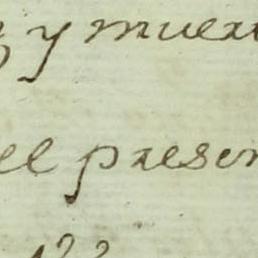 y muert
el presen